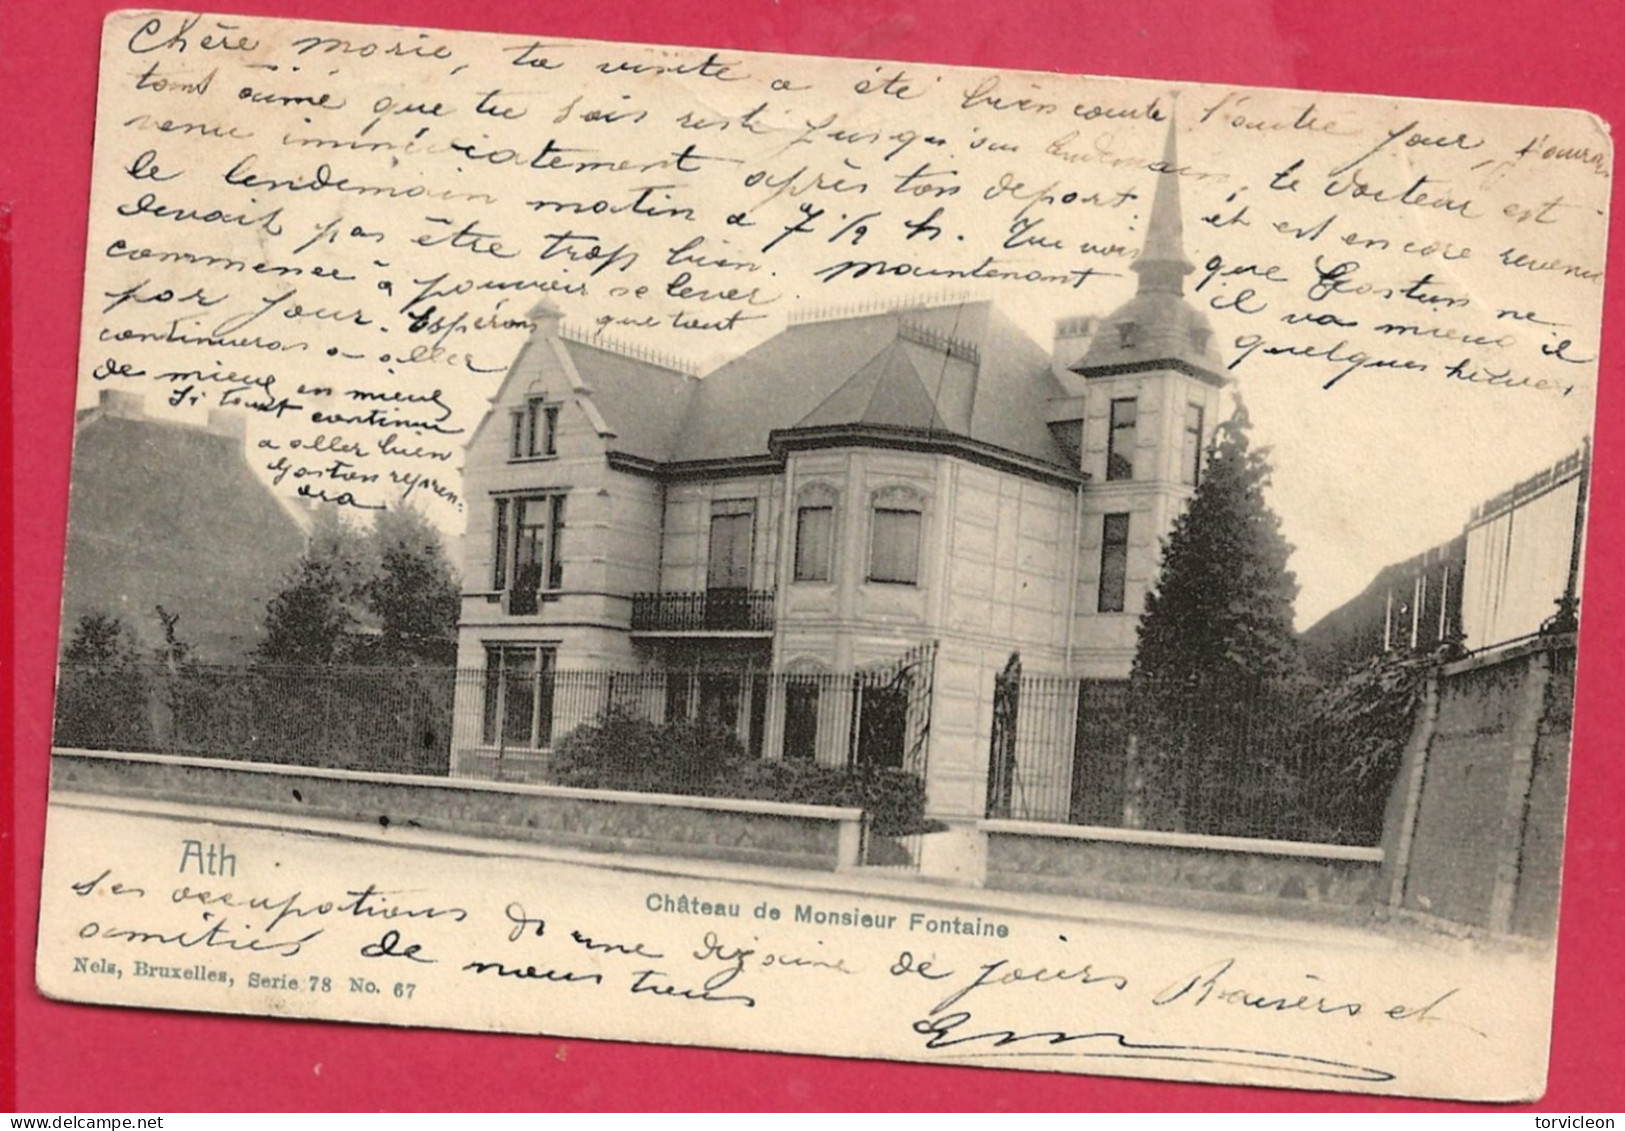 Chère Marie, ta visite a été bien courte l'autre jour, j'aurais
tant aimé que tu sois resté jusqu'au lendemain, le docteur est
venu immédiatement après ton depart et est encore revenu
le lendemain matin a 7 1/2 h. Tu vois que Gaston ne
devait pas être trop bien. Maintenant il va mieux il
commence à pouvoir se lever quelques heures
par jour. Espérons que tout
continueras a aller
de mieux en mieux
Si tout continue
a aller bien
Gaston repren-
dra
Ath
Château de Monsieur Fontaine
ses occupations d'i une dizaine de jours Baisers et
amitiés de nous tous
Nels, Bruxelles, Serie 78 No. 67
torvicleon